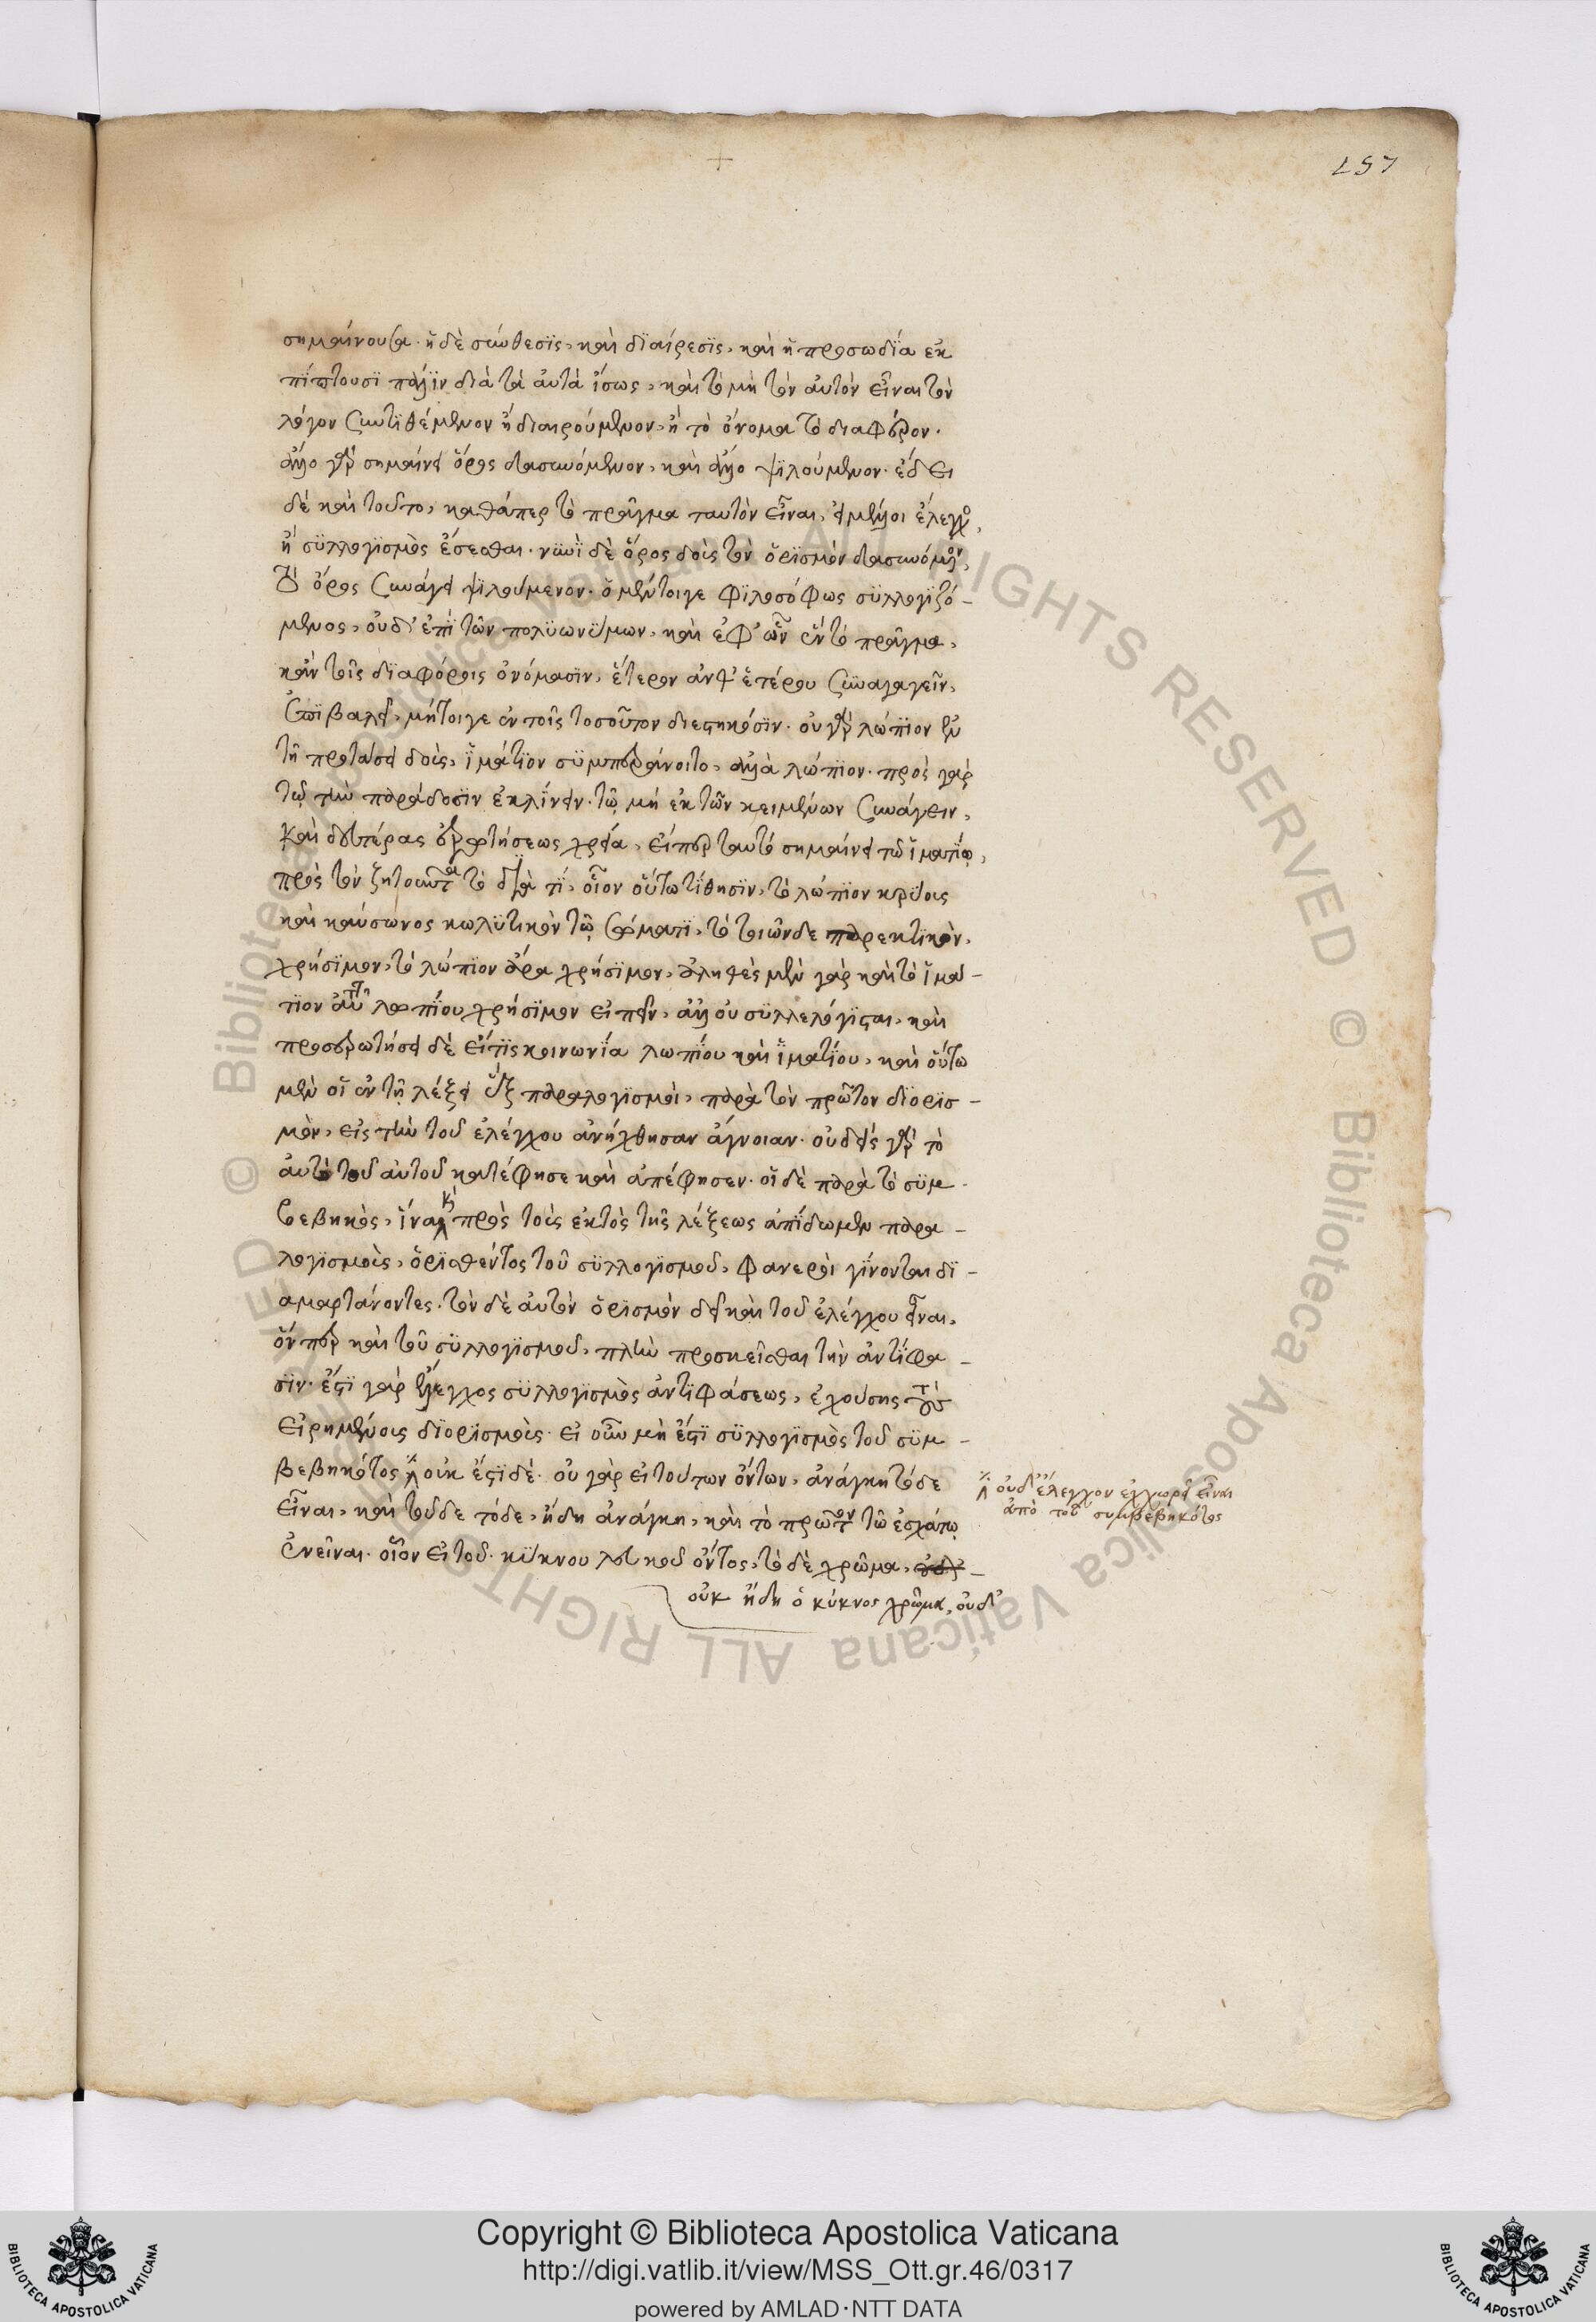 157
σημαίνουσα. ἡ δὲ σύνθεσϊς, καὶ δϊαίρεσϊς, καὶ ἡ προσωδία ἐκ
πίπτουσϊ πάλϊν διὰ τὰ αὐτὰ ἴσως, καὶ τὸ μὴ τὸν αὐτὸν εἶναι τὸν
λόγον συντϊθέμενον ἢ διαιρούμενον, ἢ τὸ ὄνομα τὸ διαφέρον.
ἄλλο γὰρ σημαίνει ὄρος δασυνόμενον, καὶ ἄλλο ψϊλούμενον. ἔδει
δὲ καὶ τοῦτο, καθάπερ τὸ πρᾶγμα ταυτὸν εἶναι, εἰ μέλλοι ἔλεγχος,
ἢ συλλογϊσμὸς ἔσεσθαι. νυνὶ δὲ ὅρος δοὺς τὸν ὁρϊσμὸν δασυνόμενον,
τὸ ὄρος συνάγει ψϊλούμενον. ὁ μέντοιγε φϊλοσόφως συλλογϊζό-
μενος, οὐδ' ἐπὶ τῶν πολυωνύμων, καὶ ἐφ' ὧν ἓν τὸ πρᾶγμα,
κἂν τοῖς δϊαφόροις ὀνόμασϊν, ἕτερον ἀνθ' ἑτέρου συναγαγεῖν,
ἐπϊβαλεῖ, μήτοιγε ἐν τοῖς τοσοῦτον διεστηκόσϊν. οὐ γὰρ λώπϊον ἐν
τῇ προτάσει δοὺς, ἱμάτϊον συμπεράνοιτο, ἀλλὰ λώπϊον. πρὸς γὰρ
τῷ τὴν παράδοσϊν ἐκλίνειν. τῷ μὴ ἐκ τῶν κειμένων συνάγειν,
καὶ δευτέρας ἐρωτήσεως χρεία, εἴπερ ταυτὸ σημαίνει τῷ ἱματίῳ,
πρὸς τὸν ζητοῦντα τὸ διὰ τί, οἷον οὕτω τίθησϊν, τὸ λώπϊον κρύους
καὶ καύσωνος κωλυτικὸν τῷ σώματϊ, τὸ τοιῶνδε παρεκτϊκὸν,
χρήσϊμον, τὸ λώπϊον ἄρα χρήσϊμον, ἀληθὲς μὲν γὰρ καὶ τὸ ἱμά-
τϊον ἀντὶ λωπίου χρήσϊμον εἰπεῖν, ἀλλ' οὐ συλλελόγϊσται, καὶ
προσερωτήσει δὲ εἴ τϊς κοινωνία λωπίου καὶ ἱματίου, καὶ οὕτω
μὲν οἱ ἐν τῇ λέξει ἓξ παραλογϊσμοὶ, παρὰ τὸν πρῶτον δϊορϊσ-
μὸν, εἰς τὴν τοῦ ἐλέγχου ἀνήχθησαν ἄγνοιαν. οὐδεὶς γὰρ τὸ
αὐτὸ τοῦ αὐτοῦ κατέφησε καὶ ἀπέφησεν. οἱ δὲ παρὰ τὸ συμ-
βεβηκὸς, ἵνα καὶ πρὸς τοὺς ἐκτὸς τῆς λέξεως ἀπίδωμεν παρα-
λογϊσμοὺς, ὁρϊσθέντος τοῦ συλλογϊσμοῦ, φανεροὶ γίνονται δϊ-
αμαρτάνοντες. τὸν δὲ αὐτὸν ὁρισμὸν δεῖ καὶ τοῦ ἐλέγχου εἶναι,
ὅνπερ καὶ τοῦ συλλογϊσμοῦ, πλὴν προσκεῖσθαι τὴν ἀντίφα-
σϊν. ἔστϊ γὰρ ἔλεγχος συλλογϊσμὸς ἀντϊφάσεως, ἐχούσης τοὺς
εἰρημένους δϊορϊσμούς. εἰ οὖν μὴ ἔστϊ συλλογϊσμὸς τοῦ συμ-
βεβηκότος οὐκ ἔστϊ δέ. οὐ γὰρ εἰ τούτων ὄντων, ἀνάγκη τόδε
εἶναι, καὶ τοῦδε τόδε, ἤδη ἀνάγκη, καὶ τὸ πρῶτον τῷ ἐσχάτῳ
ἐνεῖναι. οἷον εἰ τοῦ κύκνου λευκοῦ ὄντος, τὸ δὲ χρῶμα,
οὐκ ἤδη ὁ κύκνος χρῶμα, οὐδ'
οὐδ' ἔλεγχον ἐγχωρεῖ εἶναι
ἀπὸ τοῦ συμβεβηκότος
© Biblioteca Apostolica Vaticana ALL RIGHTS RESERVED
Copyright © Biblioteca Apostolica Vaticana
http://digi.vatlib.it/view/MSS_Ott.gr.46/0317
powered by AMLAD·NTT DATA
BIBLIOTECA APOSTOLICA VATICANA
BIBLIOTECA APOSTOLICA VATICANA